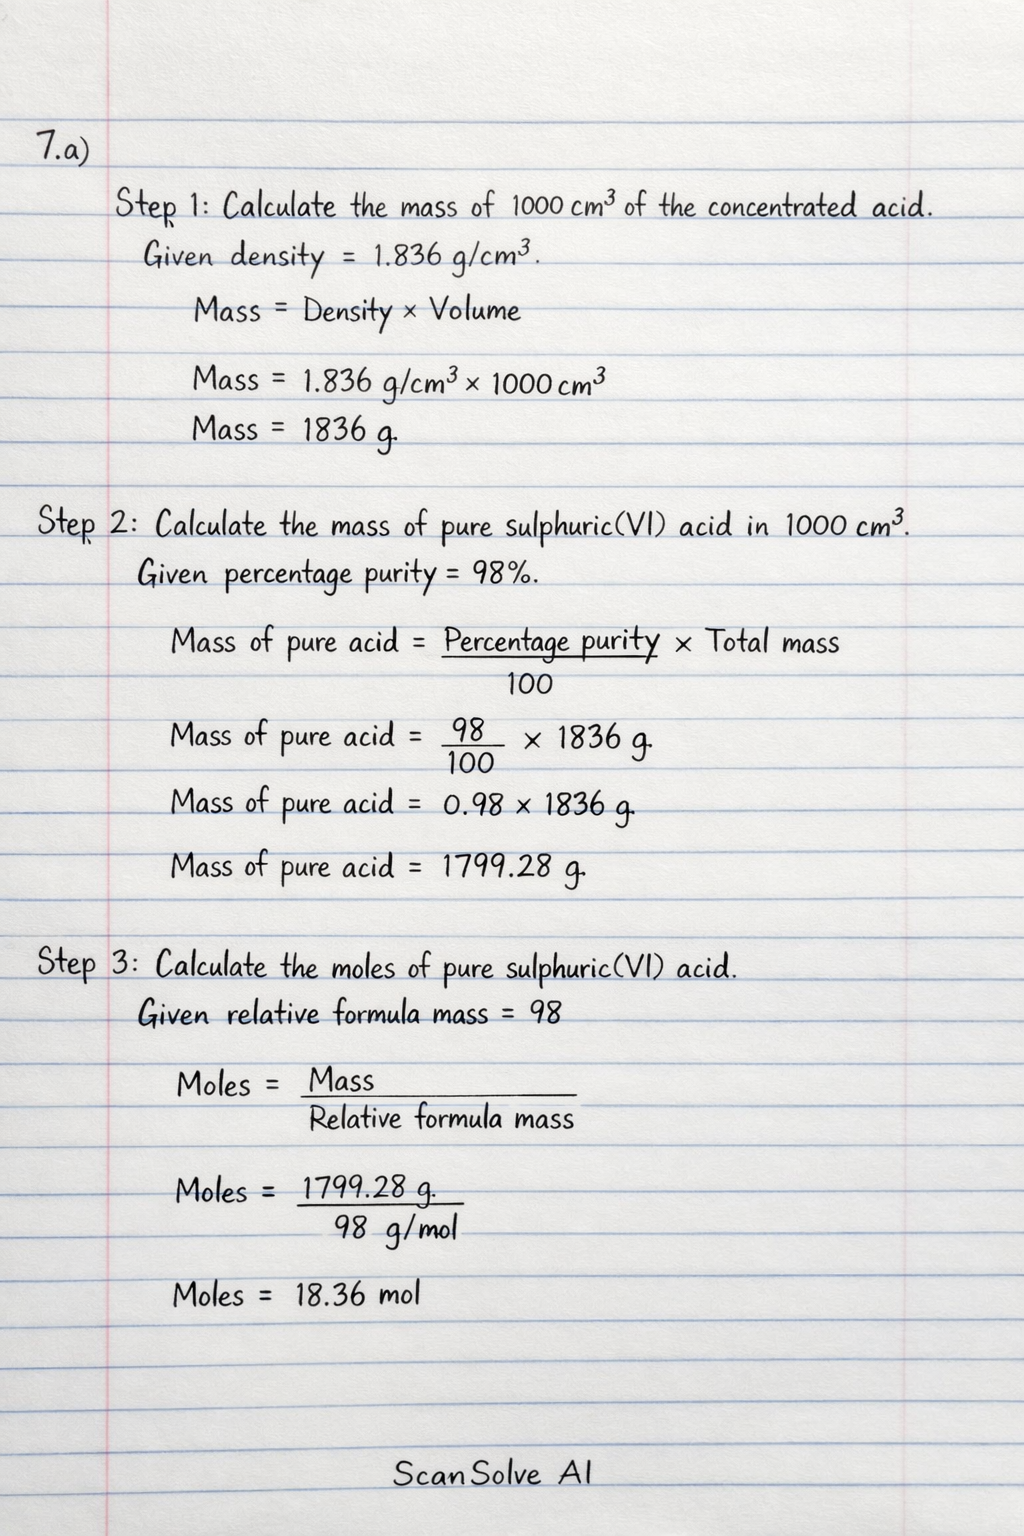 7.a)
Step 1: Calculate the mass of 1000 cm³ of the concentrated acid.
Given density = 1.836 g/cm³.
Mass = Density × Volume
Mass = 1.836 g/cm³ × 1000 cm³
Mass = 1836 g.
Step 2: Calculate the mass of pure sulphuric(VI) acid in 1000 cm³.
Given percentage purity = 98%.
Mass of pure acid = Percentage purity × Total mass
100
Mass of pure acid = 98 × 1836 g.
100
Mass of pure acid = 0.98 × 1836 g.
Mass of pure acid = 1799.28 g.
Step 3: Calculate the moles of pure sulphuric(VI) acid.
Given relative formula mass = 98
Moles = Mass
Relative formula mass
Moles = 1799.28 g.
98 g/mol
Moles = 18.36 mol
ScanSolve AI